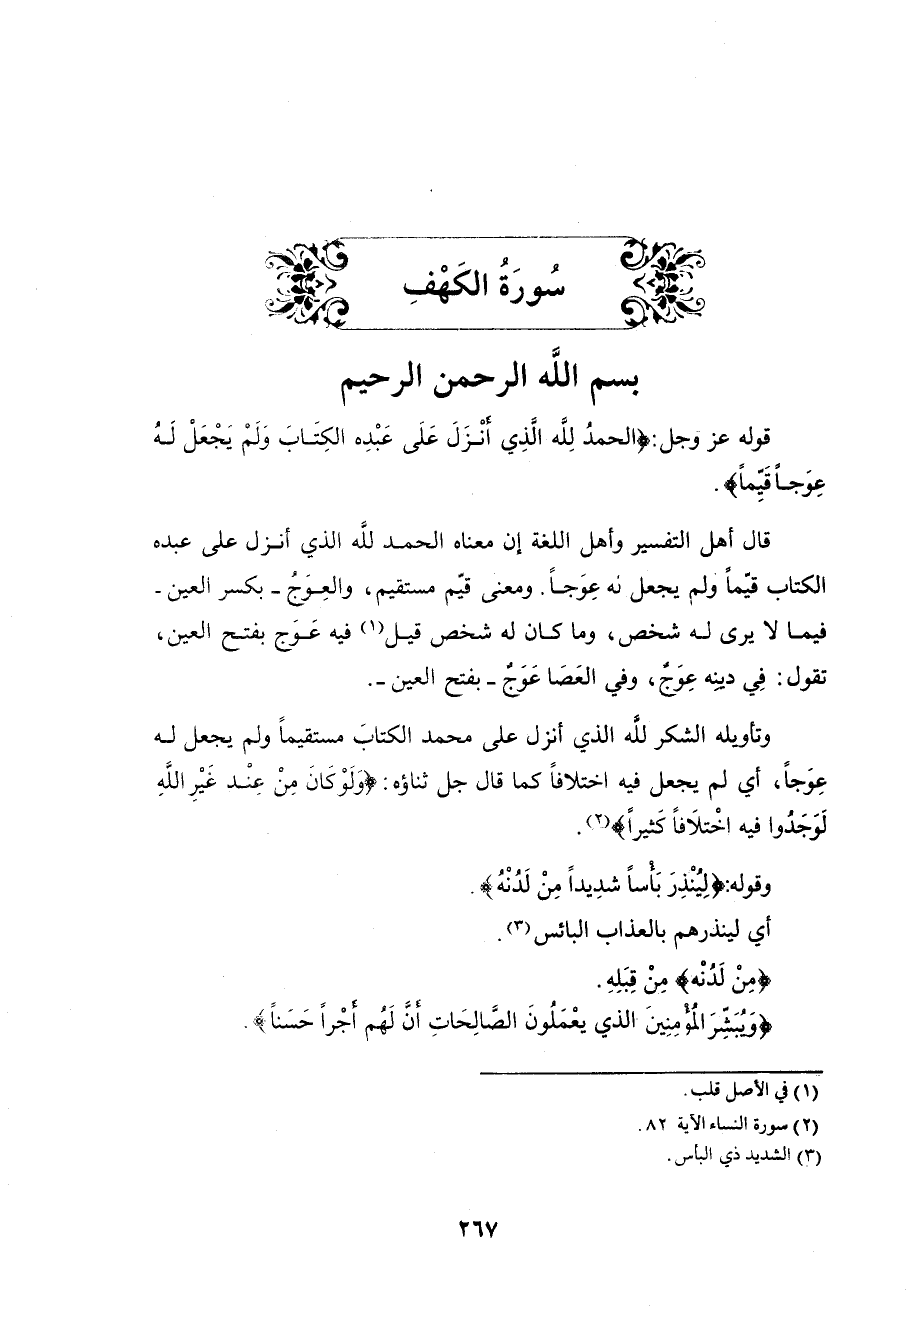 سُورَةُ الكَهْفِ
بسم اللَّه الرحمن الرحيم
قوله عز وجل:﴿الحمدُ لِلَّه الَّذِي أَنْـزَلَ عَلَى عَبْدِه الكِتَـابَ وَلَمْ يَجْعَلْ لَـهُ
عِوَجـاً قَيِّماً﴾.
قال أهل التفسير وأهل اللغة إن معناه الحمـد للَّه الذي أنـزل على عبده
الكتاب قيّماً ولم يجعل نه عِوَجـاً. ومعنى قيّم مستقيم، والعِـوَجُ ـ بكسر العين ـ
فيمـا لا يرى لـه شخص، وما كـان له شخص قيـل(١) فيه عَـوَج بفتـح العين،
تقول: فِي دينِه عِوَجٌ، وفي العَصَا عَوَجٌ ـ بفتح العين ـ.
وتأويله الشكر للَّه الذي أنزل على محمد الكتابَ مستقيماً ولم يجعل لـه
عِوَجاً، أي لم يجعل فيه اختلافاً كما قال جل ثناؤه: ﴿وَلَوْ كَانَ مِنْ عِنْـد غَيْرِ اللَّهِ
لَوَجَدُوا فيه اخْتلَافاً كَثيراً﴾(٢).
وقوله:﴿لِيُنْذِرَ بَأْساً شديداً مِنْ لَدُنْهُ﴾.
أي لينذرهم بالعذاب البائس(٣).
﴿مِنْ لَدُنْه﴾ مِنْ قِبَلِهِ.
﴿وَيُبَشِّرَ المُؤْمِنِينَ الذي يعْمَلُونَ الصَّالِحَاتِ أَنَّ لَهُم أَجْراً حَسَناً﴾.
(١) في الأصل قلب.
(٢) سورة النساء الآية ٨٢.
(٣) الشديد ذي البأس.
٢٦٧